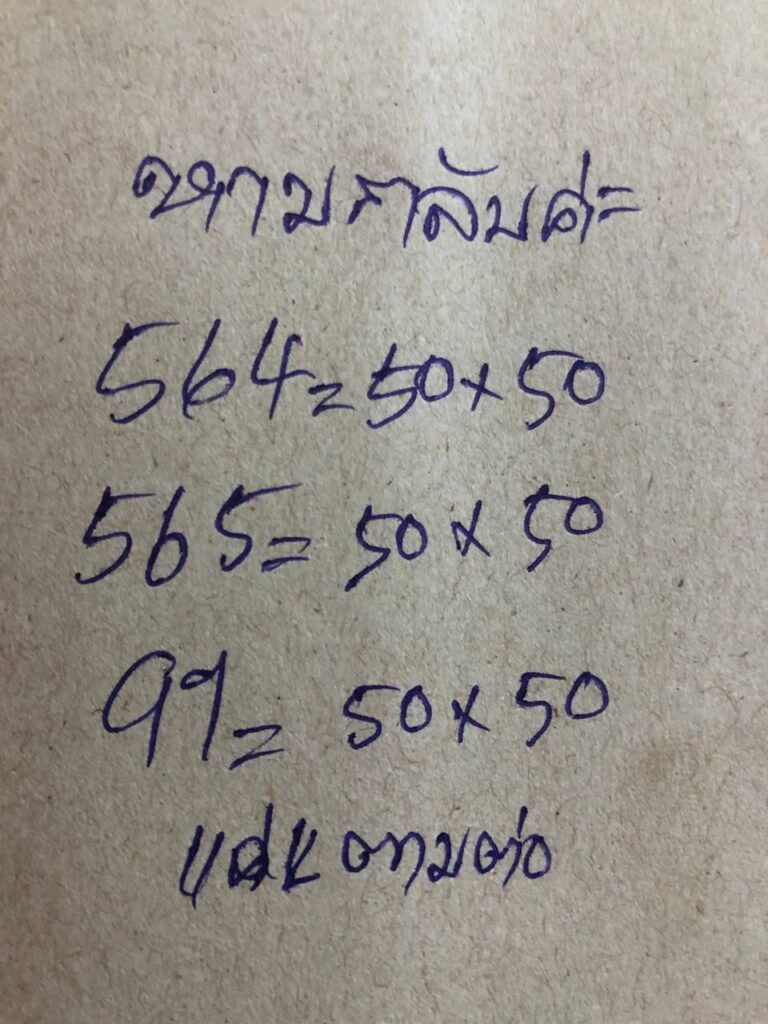 หามกลับค่ะ
564=50×50
565=50×50
99=50×50
ตามต่อ